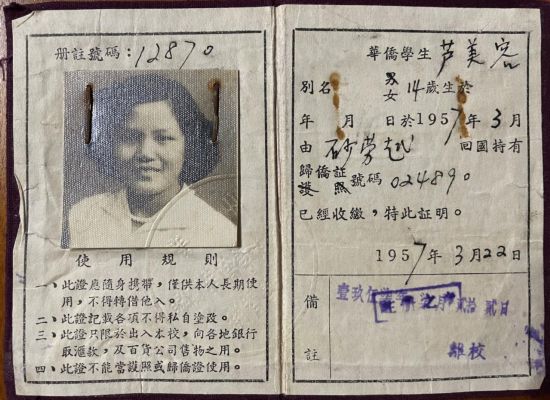 册註號碼：12870
使用規則
一、此證應隨身携帶，僅供本人長期使
用，不得轉借他人。
二、此證記載各項不得私自塗改。
三、此證只限於出入本校，向各地銀行
取滙款，及百貨公司售物之用。
四、此證不能當護照或歸僑證使用。
華僑學生 芦美容
別名 男女 14歲生於
年 月 日於1957年3月
由 砂劳越 回國持有
歸僑証
護照 號碼 024890
已經收繳，特此証明。
1957年3月22日
備註
壹玖 月貳拾貳日
離校